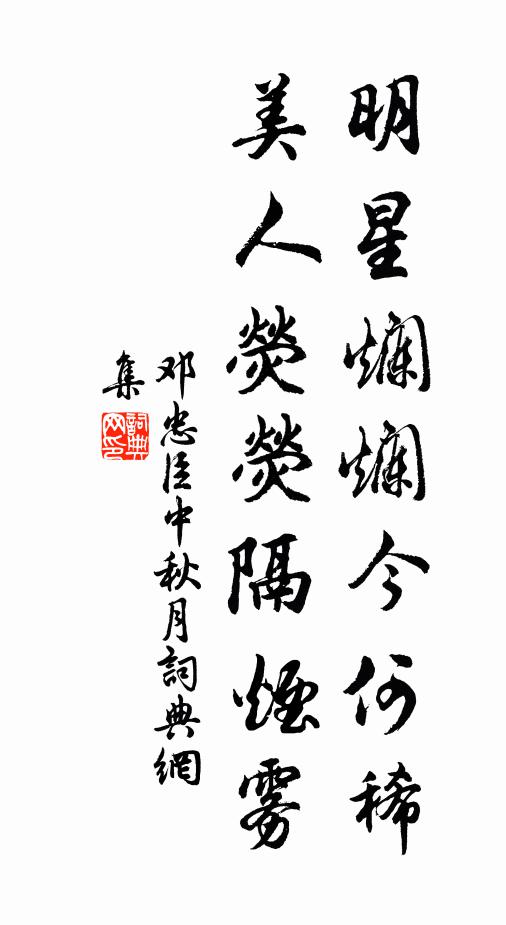 明星爛爛今何稀
美人熒熒隔煙雾
邓忠臣中秋月詞典網
集
詞典网印